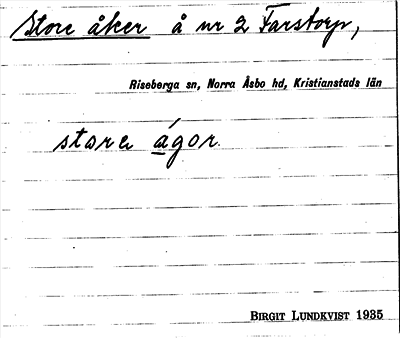 Store åker å nr 2 Farstorp,
Riseberga sn, Norra Åsbo hd, Kristianstads län
stor
BIRGIT LUNDKVIST 1935